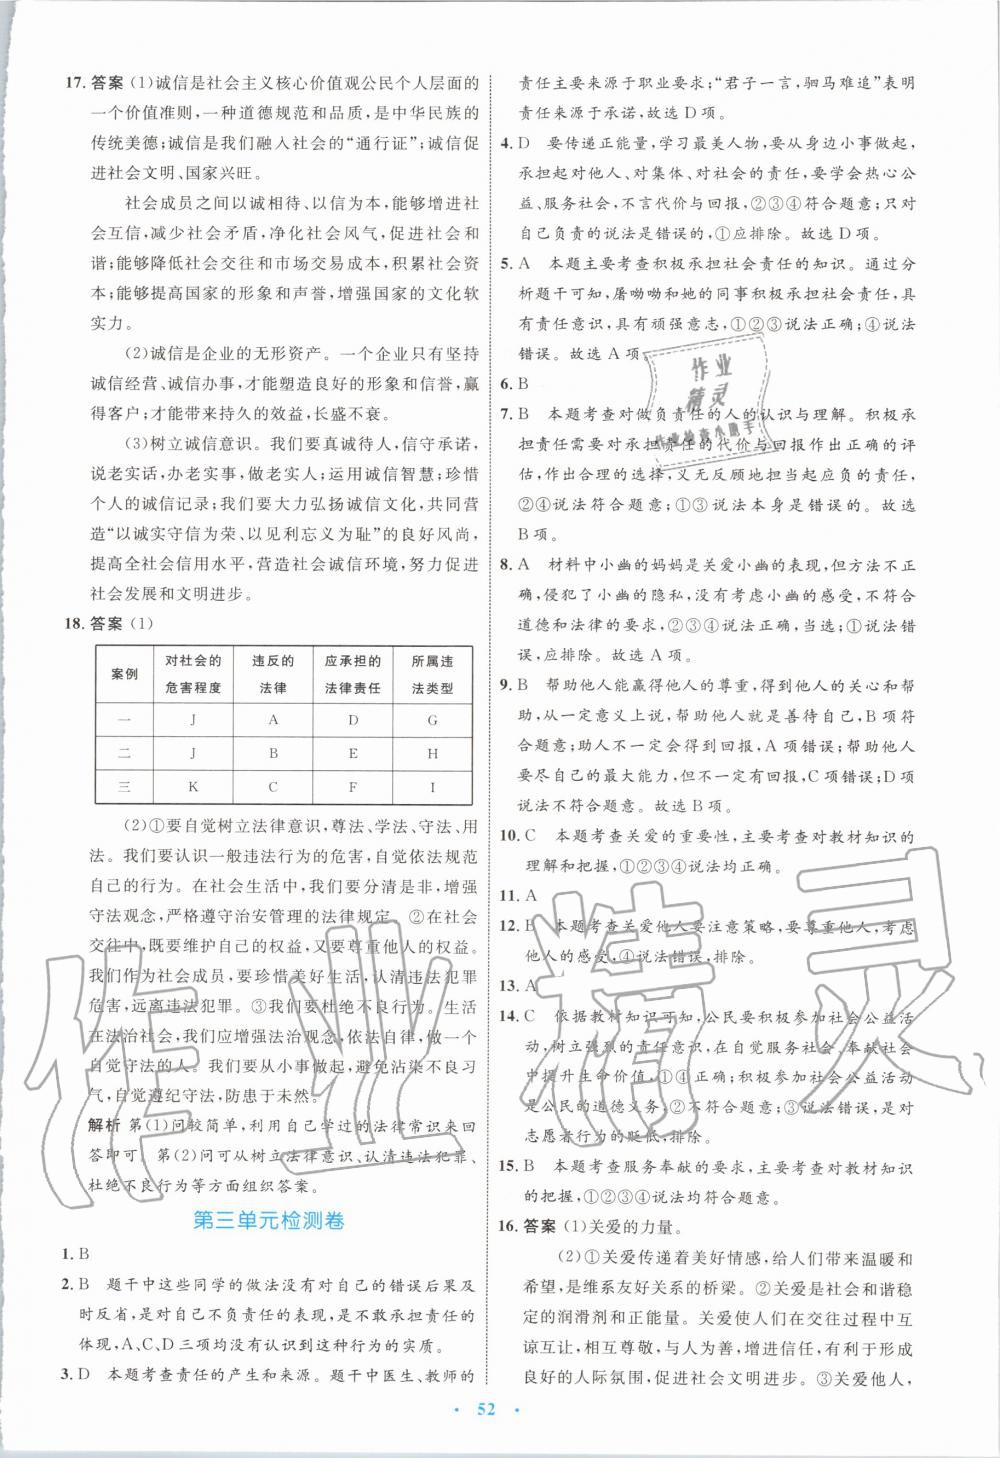 17. 答案 (1)诚信是社会主义核心价值观公民个人层面的
一个价值准则,一种道德规范和品质,是中华民族的
传统美德;诚信是我们融入社会的“通行证”;诚信促
进社会文明、国家兴旺。
社会成员之间以诚相待、以信为本,能够增进社
会互信,减少社会矛盾,净化社会风气,促进社会和
谐;能够降低社会交往和市场交易成本,积累社会资
本;能够提高国家的形象和声誉,增强国家的文化软
实力。
(2)诚信是企业的无形资产。一个企业只有坚持
诚信经营、诚信办事,才能塑造良好的形象和信誉,赢
得客户;才能带来持久的效益,长盛不衰。
(3)树立诚信意识。我们要真诚待人,信守承诺,
说老实话,办老实事,做老实人;运用诚信智慧;珍惜
个人的诚信记录;我们要大力弘扬诚信文化,共同营
造“以诚实守信为荣、以见利忘义为耻”的良好风尚,
提高全社会信用水平,营造社会诚信环境,努力促进
社会发展和文明进步。
18. 答案 (1)
案例 对社会的危害程度 违反的法律 应承担的法律责任 所属违法类型
一 J A D G
二 J B E H
三 K C F I
(2)①要自觉树立法律意识,尊法、学法、守法、用
法。我们要认识一般违法行为的危害,自觉依法规范
自己的行为。在社会生活中,我们要分清是非,增强
守法观念,严格遵守治安管理的法律规定。②在社会
交往中,既要维护自己的权益,又要尊重他人的权益。
我们作为社会成员,要珍惜美好生活,认清违法犯罪
危害,远离违法犯罪。③我们要杜绝不良行为。生活
在法治社会,我们应增强法治观念,依法自律,做一个
守法的人。我们要从小事做起,避免沾染不良习
气,自觉遵纪守法,防患于未然。
解析 第(1)问较简单,利用自己学过的法律常识来回
答即可。第(2)问可从树立法律意识、认清违法犯罪、
杜绝不良行为等方面组织答案。
第三单元检测卷
1. B
2. B 题干中这些同学的做法没有对自己的错误后果及
时反省,是对自己不负责任的表现,是不敢承担责任的
体现,A、C、D三项均没有认识到这种行为的实质。
3. D 本题考查责任的产生和来源。题干中医生、教师的
责任主要来源于职业要求;“君子一言,驷马难追”表明
责任来源于承诺。故选D项。
4. D 要传递正能量,学习最美人物,要从身边小事做起,
承担起对他人、对集体、对社会的责任,要学会热心公
益、服务社会,不言代价与回报,②③④符合题意;只对
自己负责的说法是错误的,①应排除。故选D项。
5. A 本题主要考查积极承担社会责任的知识。通过分
析题干可知,屠呦呦和她的同事积极承担社会责任,具
有责任意识,具有顽强意志,①②③说法正确;④说法
错误。故选A项。
6. B
7. B 本题考查对做负责任的人的认识与理解。积极承
担责任需要对承担责任的代价与回报作出正确的评
估,作出合理的选择,义无反顾地担当起应负的责任,
②④说法符合题意;①③说法本身是错误的。故选
B项。
8. A 材料中小幽的妈妈是关爱小幽的表现,但方法不正
确,侵犯了小幽的隐私,没有考虑小幽的感受,不符合
道德和法律的要求,②③④说法正确,当选;①说法错
误,应排除。故选A项。
9. B 帮助他人能赢得他人的尊重,得到他人的关心和帮
助,从一定意义上说,帮助他人就是善待自己,B项符
合题意;助人不一定会得到回报,A项错误;帮助他人
要尽自己的最大能力,但不一定有回报,C项错误;D项
说法不符合题意。故选B项。
10. C 本题考查关爱的重要性,主要考查对教材知识的
理解和把握,①②③④说法均正确。
11. A
12. B 本题考查关爱他人要注意策略,要尊重他人,考虑
他人的感受,④说法错误,排除。
13. A
14. C 依据教材知识可知,公民要积极参加社会公益活
动,树立强烈的责任意识,在自觉服务社会、奉献社会
中提升生命价值,①④正确;积极参加社会公益活动
是公民的道德义务,②不符合题意;③说法错误,是对
志愿者行为的贬低,排除。
15. B 本题考查服务奉献的要求,主要考查对教材知识
的把握,①②③④说法均符合题意。
16. 答案 (1)关爱的力量。
(2)①关爱传递着美好情感,给人们带来温暖和
希望,是维系友好关系的桥梁。②关爱是社会和谐稳
定的润滑剂和正能量。关爱使人们在交往过程中互
谅互让、相互尊敬,与人为善、增强信任,有利于形成
良好的人际氛围,促进社会文明进步。③关爱他人,
· 52 ·
作业
精灵
作业检查小助手
作业精灵